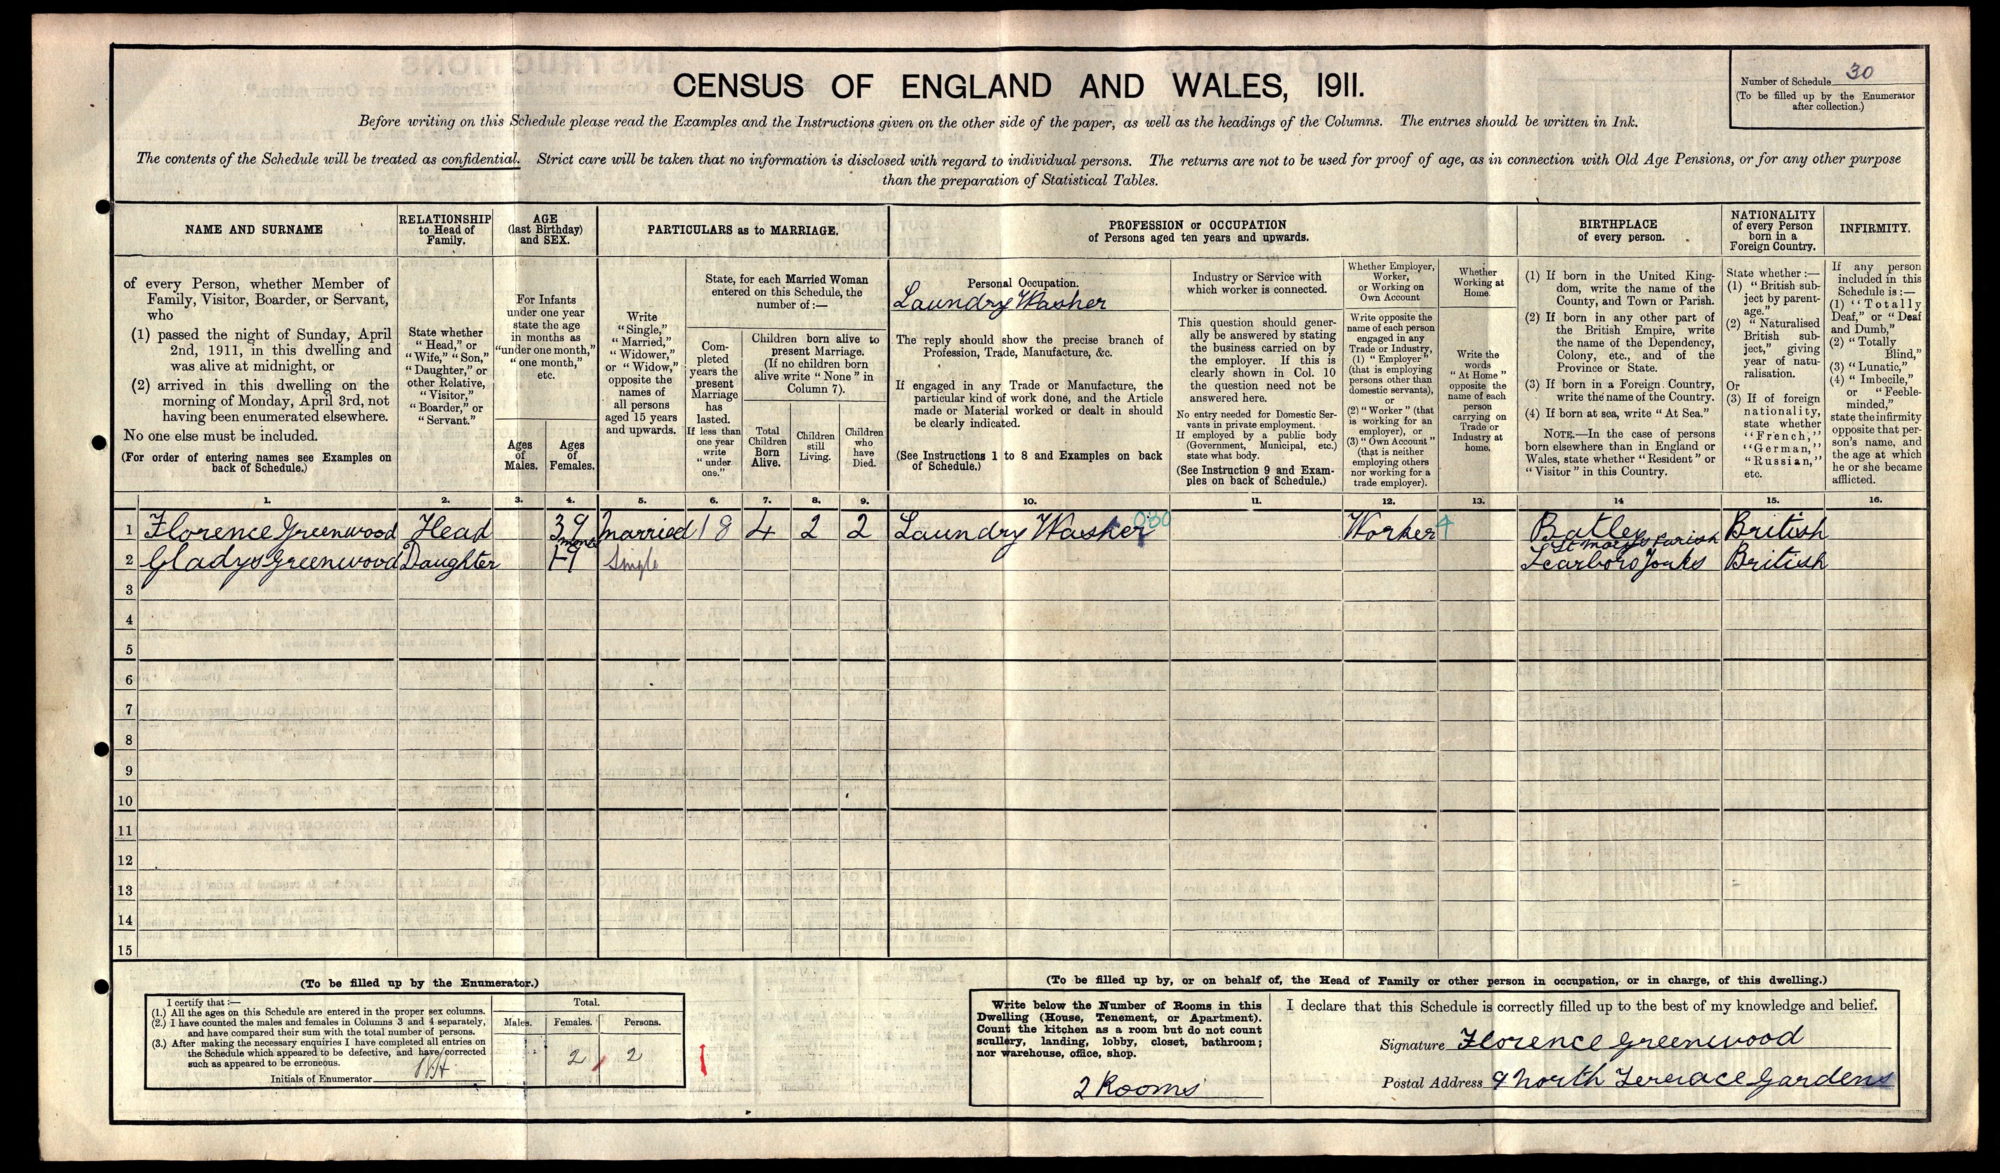 CENSUS OF ENGLAND AND WALES, 1911.
Number of Schedule 30
(To be filled up by the Enumerator
after collection.)
Before writing on this Schedule please read the Examples and the Instructions given on the other side of the paper, as well as the headings of the Columns. The entries should be written in Ink.
The contents of the Schedule will be treated as confidential. Strict care will be taken that no information is disclosed with regard to individual persons. The returns are not to be used for proof of age, as in connection with Old Age Pensions, or for any other purpose
than the preparation of Statistical Tables.
NAME AND SURNAME
of every Person, whether Member of
Family, Visitor, Boarder, or Servant,
who
(1) passed the night of Sunday, April
2nd, 1911, in this dwelling and
was alive at midnight, or
(2) arrived in this dwelling on the
morning of Monday, April 3rd, not
having been enumerated elsewhere.
No one else must be included.
(For order of entering names see Examples on
back of Schedule.)
RELATIONSHIP
to Head of
Family.
State whether
"Head," or
"Wife," "Son,"
"Daughter," or
other Relative,
"Visitor,"
"Boarder," or
"Servant."
AGE
(last Birthday)
and SEX.
For Infants
under one year
state the age
in months as
"under one month,"
"one month,"
etc.
Ages
of
Males.
Ages
of
Females.
PARTICULARS as to MARRIAGE.
Write
"Single,"
"Married,"
"Widower,"
or "Widow,"
opposite the
names of
all persons
aged 15 years
and upwards.
State, for each Married Woman
entered on this Schedule, the
number of:—
Com-
pleted
years the
present
Marriage
has
lasted.
If less than
one year
write
"under
one."
Children born alive to
present Marriage.
(If no children born
alive write "None" in
Column 7).
Total
Children
Born
Alive.
Children
still
Living.
Children
who
have
Died.
PROFESSION or OCCUPATION
of Persons aged ten years and upwards.
Personal Occupation.
Laundry Washer
The reply should show the precise branch of
Profession, Trade, Manufacture, &c.
If engaged in any Trade or Manufacture, the
particular kind of work done, and the Article
made or Material worked or dealt in should
be clearly indicated.
(See Instructions 1 to 8 and Examples on back
of Schedule.)
Industry or Service with
which worker is connected.
This question should gener-
ally be answered by stating
the business carried on by
the employer. If this is
clearly shown in Col. 10
the question need not be
answered here.
No entry needed for Domestic Ser-
vants in private employment.
If employed by a public body
(Government, Municipal, etc.)
state what body.
(See Instruction 9 and Exam-
ples on back of Schedule.)
Whether Employer,
Worker,
or Working on
Own Account
Write opposite the
name of each person
engaged in any
Trade or Industry,
(1) "Employer"
(that is employing
persons other than
domestic servants),
or
(2) "Worker" (that
is working for an
employer), or
(3) "Own Account"
(that is neither
employing others
nor working for a
trade employer).
Whether
Working at
Home.
Write the
words
"At Home"
opposite the
name of each
person
carrying on
Trade or
Industry at
home.
BIRTHPLACE
of every person.
(1) If born in the United King-
dom, write the name of the
County, and Town or Parish.
(2) If born in any other part of
the British Empire, write
the name of the Dependency,
Colony, etc., and of the
Province or State.
(3) If born in a Foreign Country,
write the name of the Country.
(4) If born at sea, write "At Sea."
NOTE.—In the case of persons
born elsewhere than in England or
Wales, state whether "Resident" or
"Visitor" in this Country.
NATIONALITY
of every Person
born in a
Foreign Country.
State whether :—
(1) "British sub-
ject by parent-
age."
(2) "Naturalised
British sub-
ject," giving
year of natu-
ralisation.
Or
(3) If of foreign
nationality,
state whether
"French,"
"German,"
"Russian,"
etc.
INFIRMITY.
If any person
included in this
Schedule is :—
(1) "Totally
Deaf," or "Deaf
and Dumb,"
(2) "Totally
Blind,"
(3) "Lunatic,"
(4) "Imbecile,"
or "Feeble-
minded,"
state the infirmity
opposite that per-
son's name, and
the age at which
he or she became
afflicted.
1. 2. 3. 4. 5. 6. 7. 8. 9. 10. 11. 12. 13. 14 15. 16.
1 Florence Greenwood Head 39 Married 18 4 2 2 Laundry Washer 080 Worker 4 Batley British
2 Gladys Greenwood Daughter Single St Marys Parish Scarboro Yorks British
3
4
5
6
7
8
9
10
11
12
13
14
15
(To be filled up by the Enumerator.)
I certify that :—
(1.) All the ages on this Schedule are entered in the proper sex columns.
(2.) I have counted the males and females in Columns 3 and 4 separately,
and have compared their sum with the total number of persons.
(3.) After making the necessary enquiries I have completed all entries on
the Schedule which appeared to be defective, and have corrected
such as appeared to be erroneous.
Initials of Enumerator
Total.
Males. Females. Persons.
2 2
(To be filled up by, or on behalf of, the Head of Family or other person in occupation, or in charge, of this dwelling.)
Write below the Number of Rooms in this
Dwelling (House, Tenement, or Apartment).
Count the kitchen as a room but do not count
scullery, landing, lobby, closet, bathroom;
nor warehouse, office, shop.
2 Rooms
I declare that this Schedule is correctly filled up to the best of my knowledge and belief.
Signature Florence Greenwood
Postal Address 9 North Terrace Gardens